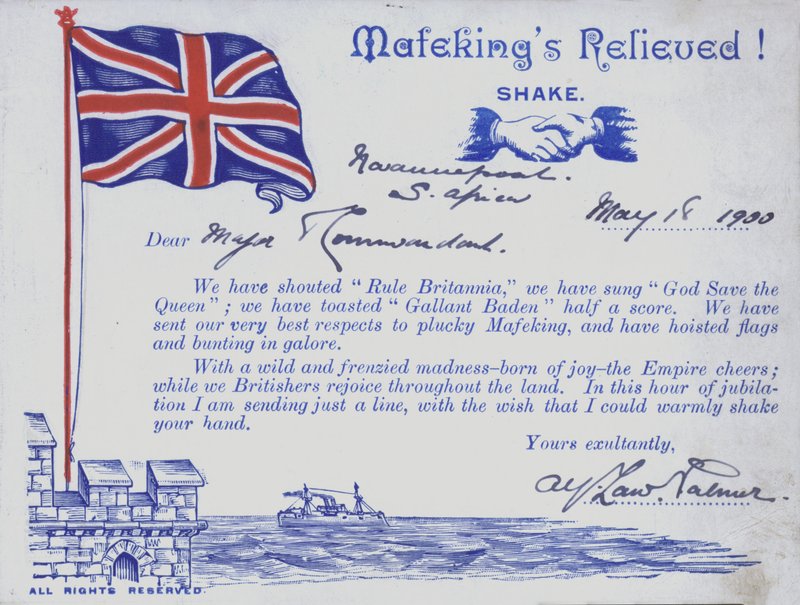 Mafeking's Relieved !
SHAKE.
Navaunepoort.
S. Africa
May 18 1900
Dear Major & Commandant.
We have shouted "Rule Britannia," we have sung "God Save the
Queen"; we have toasted "Gallant Baden" half a score. We have
sent our very best respects to plucky Mafeking, and have hoisted flags
and bunting in galore.
With a wild and frenzied madness–born of joy–the Empire cheers;
while we Britishers rejoice throughout the land. In this hour of jubila-
tion I am sending just a line, with the wish that I could warmly shake
your hand.
Yours exultantly,
Alf. Law. Palmer.
ALL RIGHTS RESERVED.